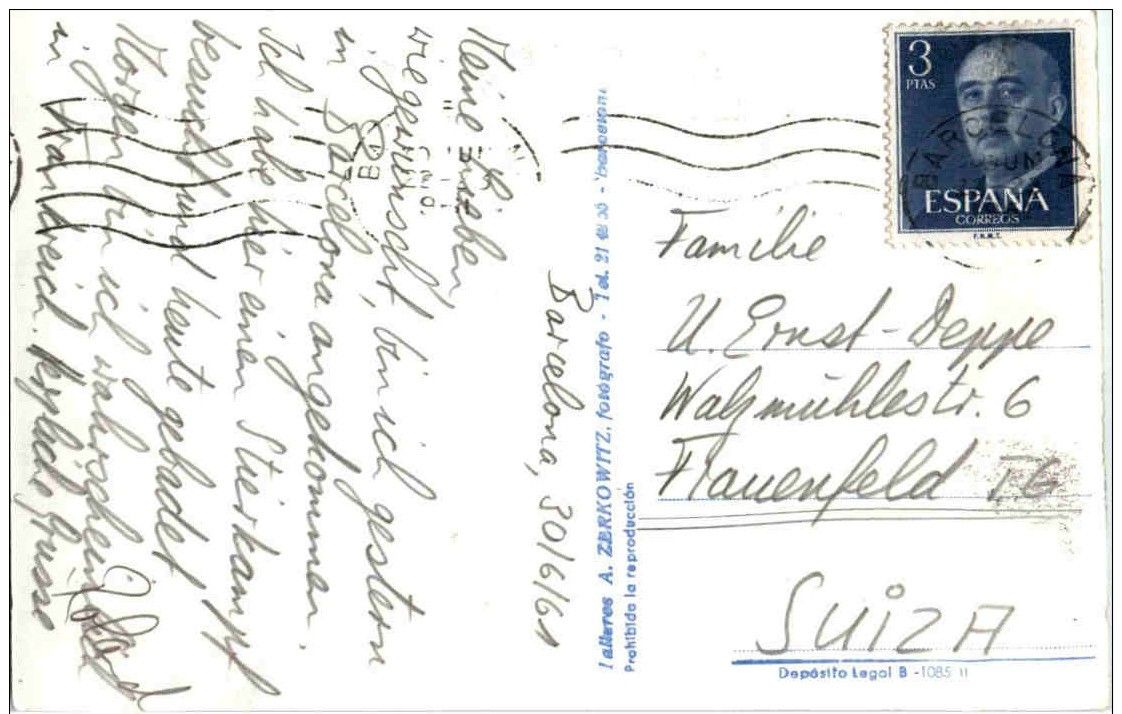 Barcelona, 30/6/61
Meine Lieben,
wie gewünscht, bin ich gestern
in Barcelona angekommen.
Ich habe hier einen Stierkampf
besucht und heute gebadet,
Morgen bin ich wahrscheinlich
in Frankreich. Herzliche Grüsse
3
PTAS
BARCELONA
JUN
ESPAÑA
CORREOS
F.N.M.T.
Familie
U. Ernst-Deppe
Walzmühlestr. 6
Frauenfeld TG
SUIZA
Talleres A. ZERKOWITZ, fotógrafo - Tel. 21 18 30 - Barcelona
Prohibida la reproducción
Depósito Legal B -1085 II